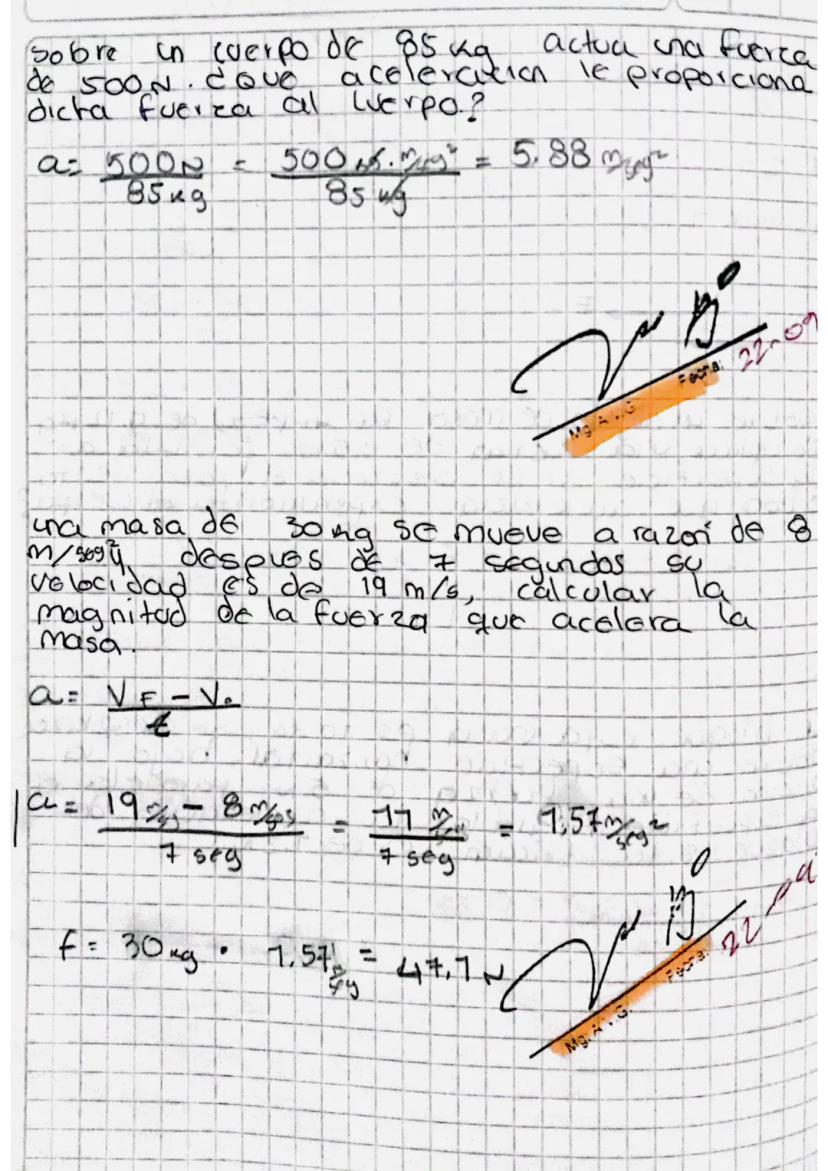 sobre un cuerpo de 85 kg actua una fuerza
de 500 N. ¿que aceleración le proporciona
dicha fuerza al cuerpo.?
a= 500N / 85 kg = 500 kg. m/seg² / 85 kg = 5.88 m/seg²
22-09
Fecha:
Mg. A.V.G.
una masa de 30 kg se mueve a razon de 8
m/seg² y después de 7 segundos su
velocidad es de 19 m/s, calcular la
magnitud de la fuerza que acelera la
masa.
a= VF - Vo / t
a= 19 m/seg - 8 m/seg / 7 seg = 11 m/seg / 7 seg = 1,57 m/seg²
f= 30 kg . 1,57 m/seg = 47,1 N
22
Fecha:
Mg. A.V.G.